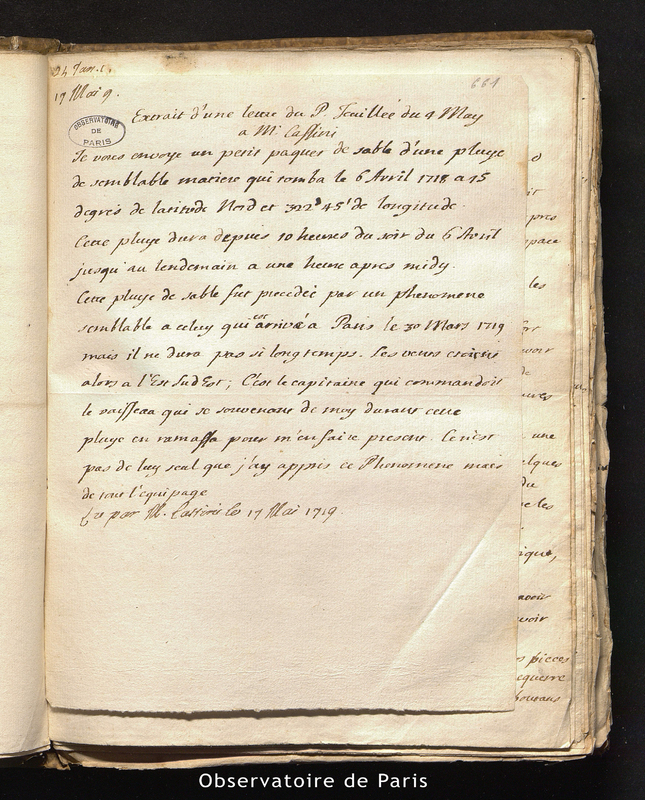 17 Mai 9.
661
Extrait d'une lettre du P. Feuillée du 9 May
a Mr Cassini
OBSERVATOIRE
DE
PARIS
Je vous envoye un petit paquet de sable d'une pluye
de semblable matiere qui tomba le 6 Avril 1718 a 45
degrés de latitude Nord et 322° 45' de longitude.
Cette pluye dura depuis 10 heures du soir du 6 Avril
jusqu'au lendemain a une heure apres midy.
Cette pluye de sable fut precedée par un phenomene
semblable a celuy qui est arrivé a Paris le 30 Mars 1719
mais il ne dura pas si longtemps. Les vents etoient
alors a l'Est Sud Est; C'est le capitaine qui commandoit
le vaisseau qui se souvenant de moy durant cette
pluye en ramassa pour m'en faire present. Ce n'est
pas de luy seul que j'ay appris ce Phenomene mais
de tout l'equipage
Lu par M. Cassini le 17 Mai 1719
les
une
elques
du
voir
pieces
Observatoire de Paris